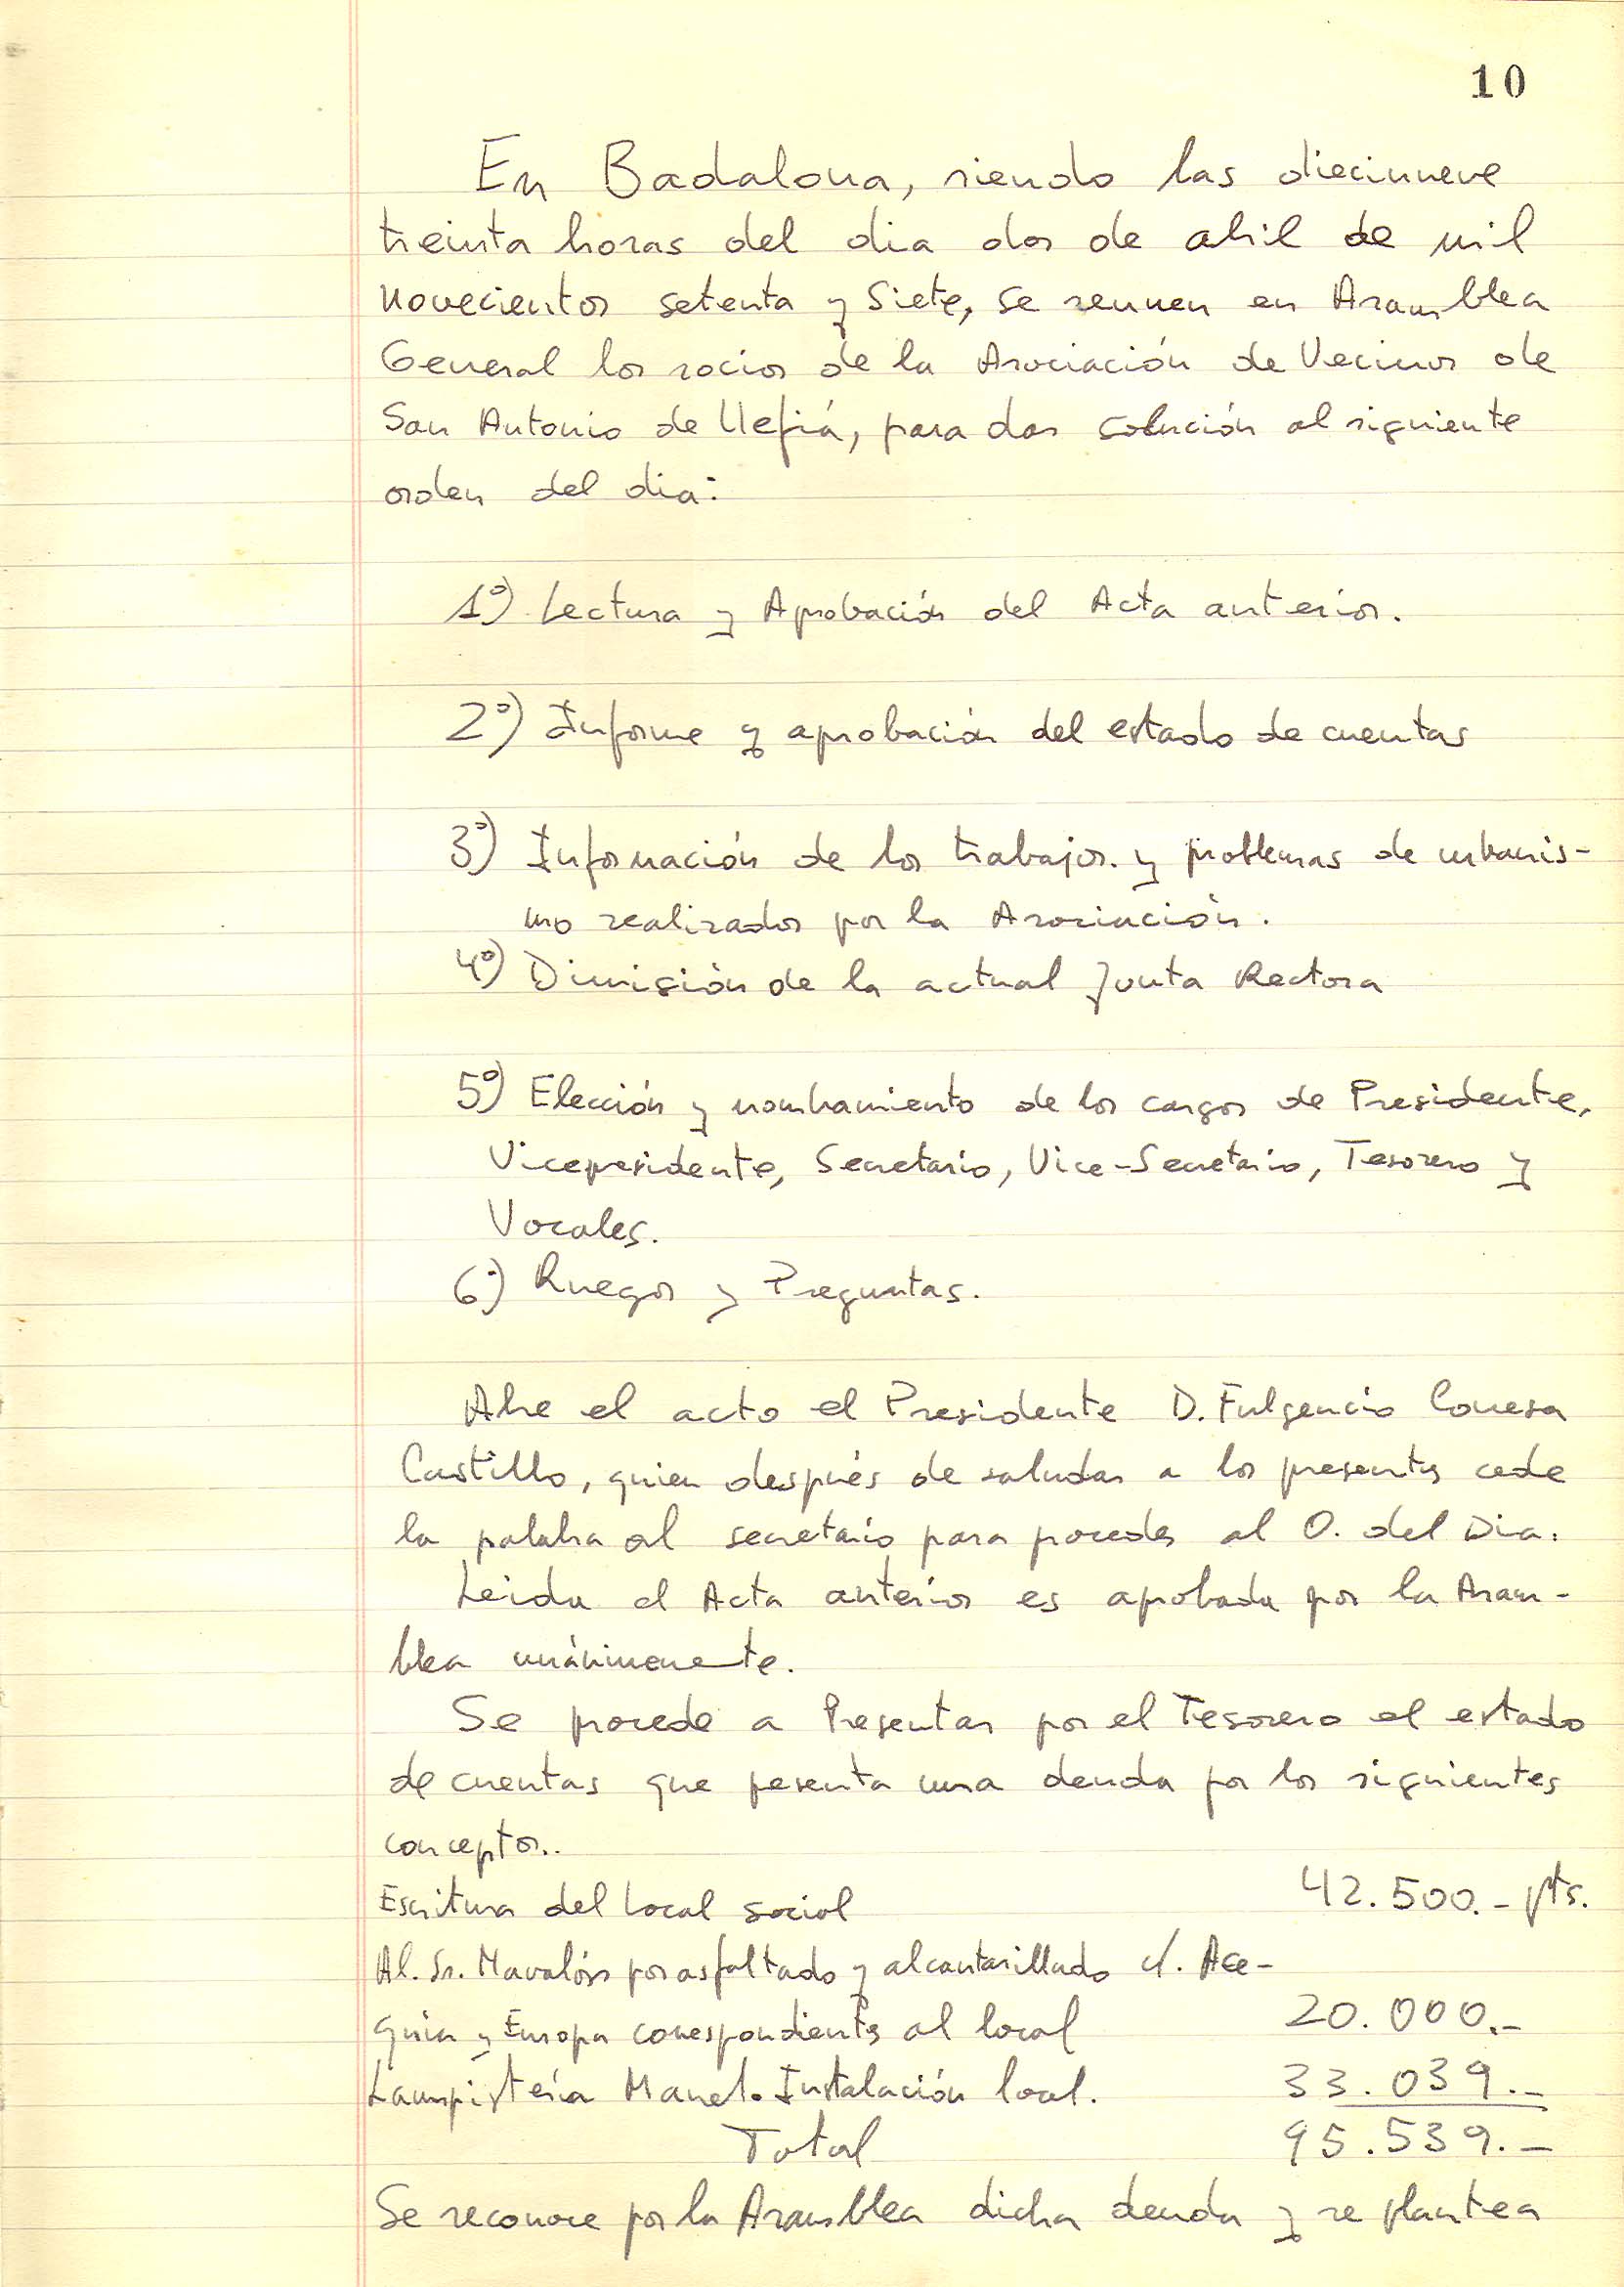 10
En Badalona, siendo las diecinueve
treinta horas del dia dos de abril de mil
novecientos setenta y siete, se reunen en Asamblea
General los socios de la Asociación de Vecinos de
San Antonio de Llefiá, para dar solución al siguiente
orden del dia:
1º) Lectura y Aprobación del Acta anterior.
2º) Informe y aprobación del estado de cuentas
3º) Información de los trabajos. y problemas de urbanis-
mo realizados por la Asociación.
4º) Dimisión de la actual Junta Rectora
5º) Elección y nombramiento de los cargos de Presidente,
Vicepresidente, Secretario, Vice-Secretario, Tesorero y
Vocales.
6º) Ruegos y Preguntas.
Abre el acto el Presidente D. Fulgencio Conesa
Castillo, quien después de saludar a los presentes cede
la palabra al secretario para proceder al O. del Dia.
Leida el Acta anterior es aprobada por la Asam-
blea unánimemente.
Se procede a Presentar por el Tesorero el estado
de cuentas que presenta una deuda por los siguientes
conceptos..
Escritura del Local social 42.500.- pts.
Al. Sr. por asfaltado y alcantarillado c/. Ace-
quia y Europa correspondientes al local 20.000.-
Lampistería Manel. Instalación local. 33.039.-
Total 95.539.-
Se reconoce por la Asamblea dicha deuda y se plantea